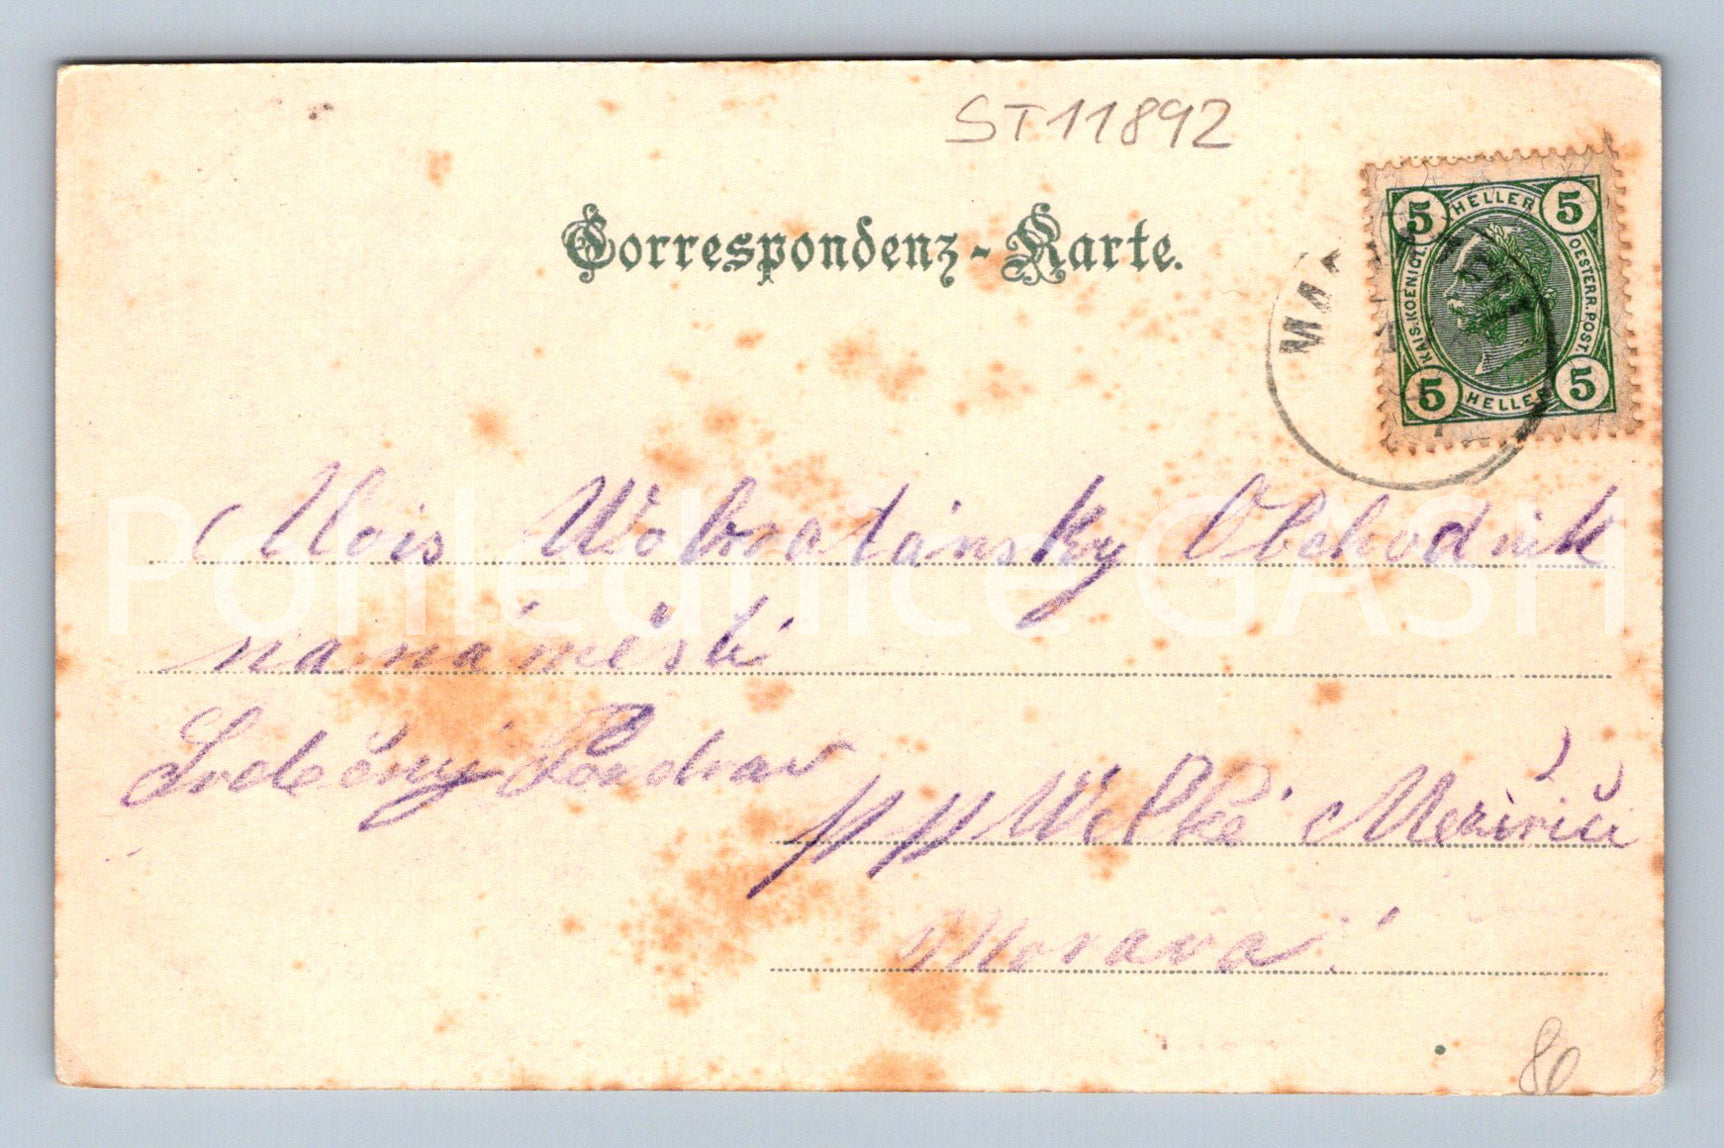 ST11892
Correspondenz-Karte.
5 HELLER 5
KAIS. KOENIGL.
OESTERR. POST.
5 HELLER 5
Alois Wobratánsky Obchodnik
na náměsti
Srdečný Pozdrav
Wélké Meziřiči
Morava!
Pohlednice GASH
80